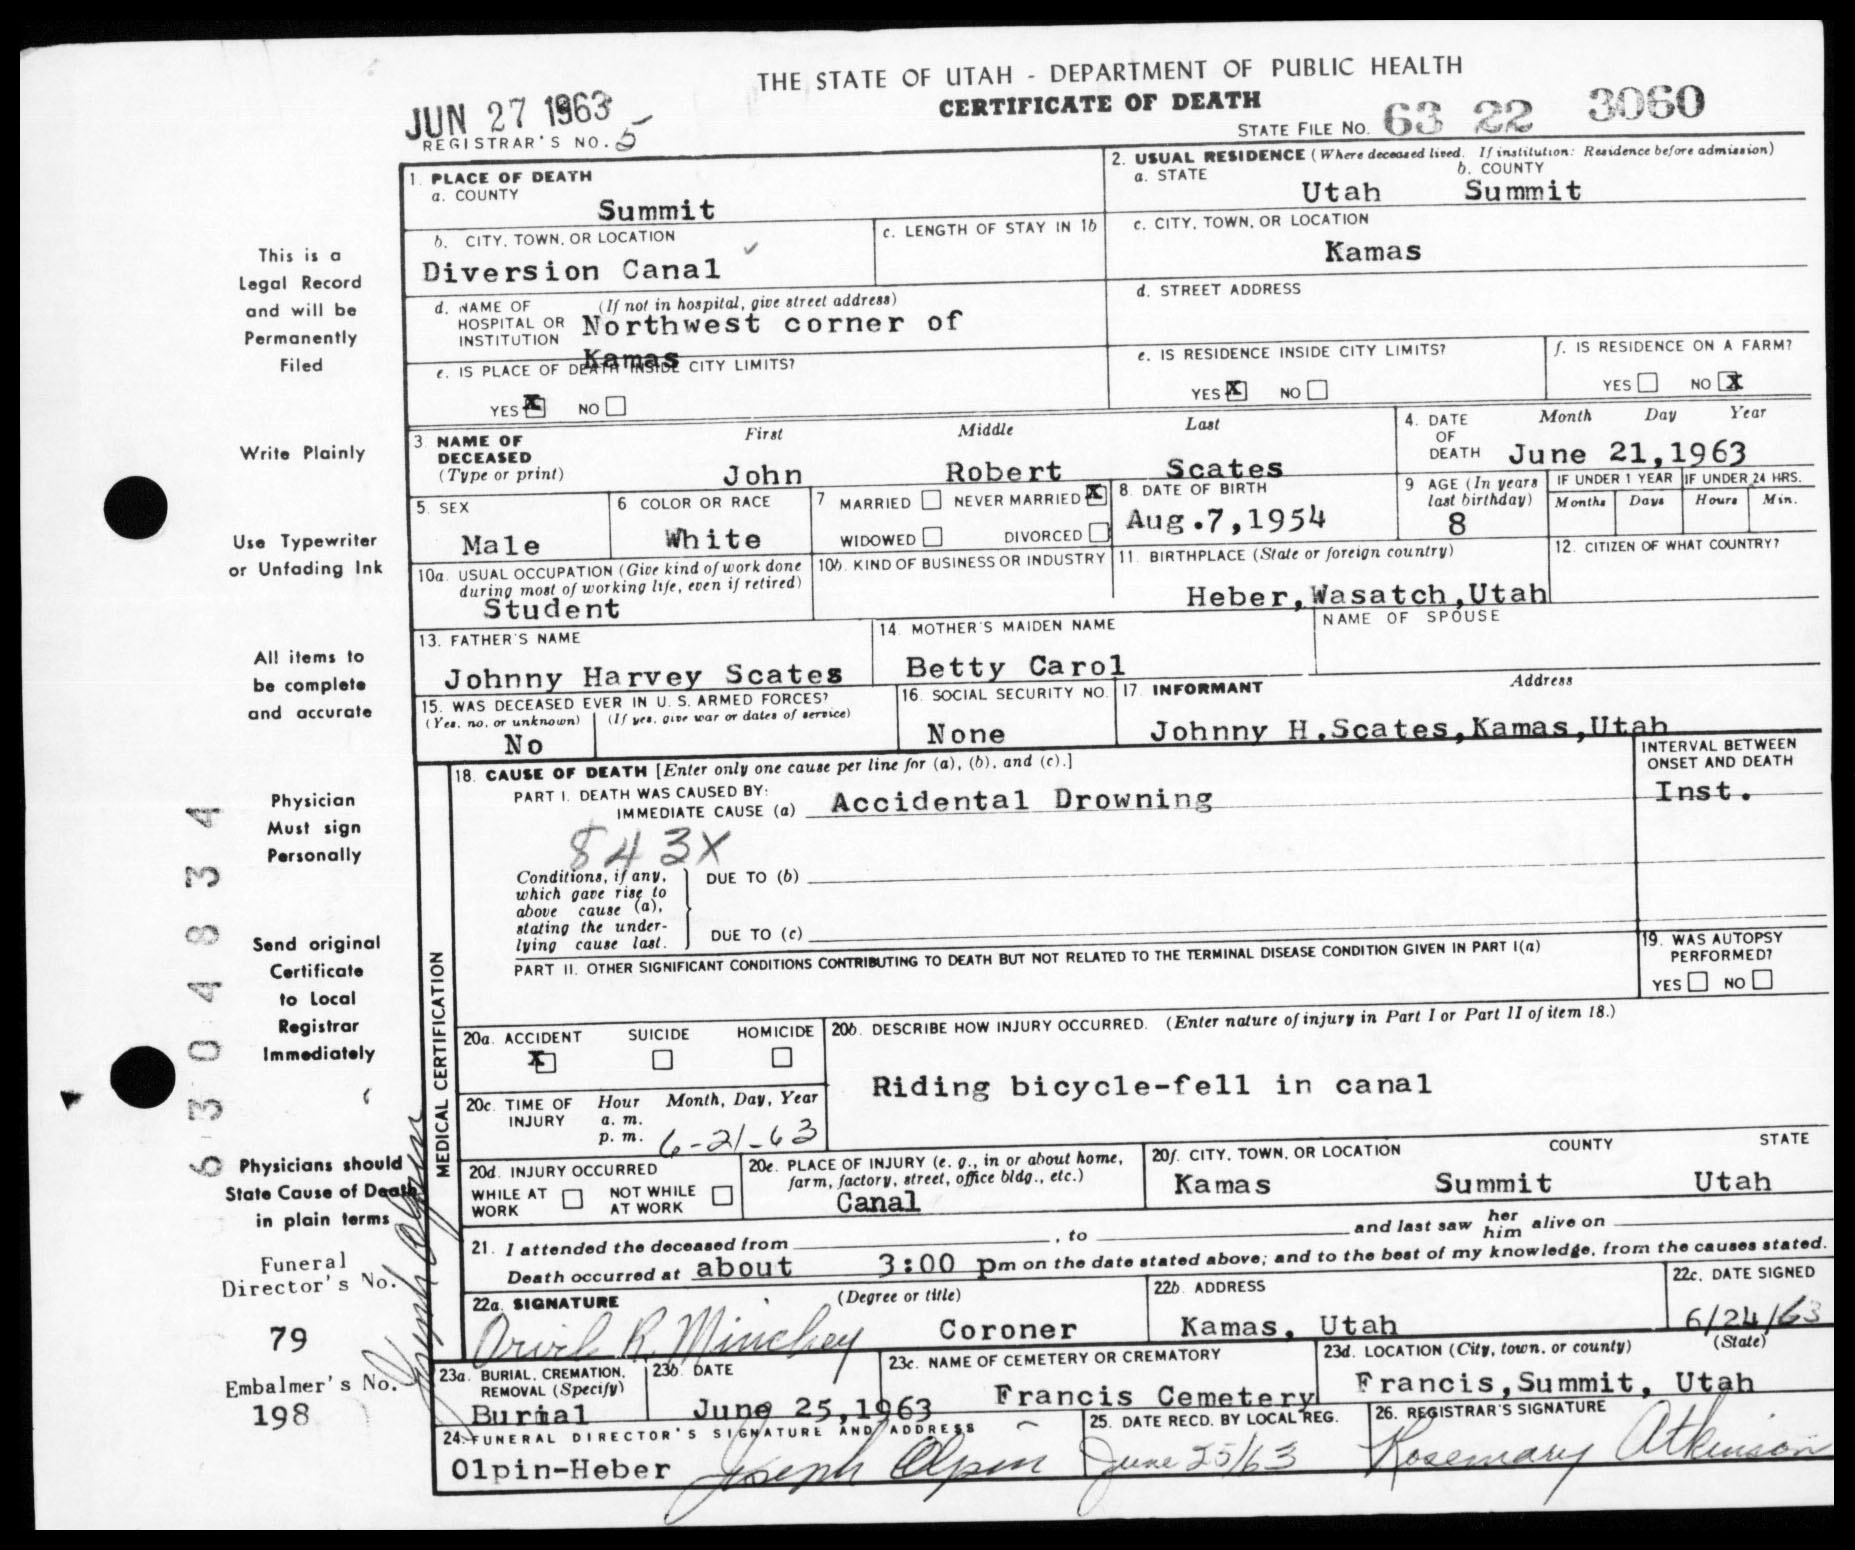 THE STATE OF UTAH - DEPARTMENT OF PUBLIC HEALTH
CERTIFICATE OF DEATH
JUN 27 1963
REGISTRAR'S NO. 5
STATE FILE NO. 63 22 3060
1. PLACE OF DEATH
a. COUNTY
Summit
2. USUAL RESIDENCE (Where deceased lived. If institution: Residence before admission)
a. STATE b. COUNTY
Utah Summit
b. CITY, TOWN, OR LOCATION
Diversion Canal
c. LENGTH OF STAY IN 1b
c. CITY, TOWN, OR LOCATION
Kamas
d. NAME OF HOSPITAL OR INSTITUTION (If not in hospital, give street address)
Northwest corner of
Kamas
d. STREET ADDRESS
e. IS PLACE OF DEATH INSIDE CITY LIMITS?
YES X NO
e. IS RESIDENCE INSIDE CITY LIMITS?
YES X NO
f. IS RESIDENCE ON A FARM?
YES NO X
3. NAME OF DECEASED (Type or print)
First Middle Last
John Robert Scates
4. DATE OF DEATH Month Day Year
June 21,1963
5. SEX
Male
6 COLOR OR RACE
White
7 MARRIED NEVER MARRIED X
WIDOWED DIVORCED
8. DATE OF BIRTH
Aug.7,1954
9 AGE (In years last birthday)
8
IF UNDER 1 YEAR
Months Days
IF UNDER 24 HRS.
Hours Min.
10a. USUAL OCCUPATION (Give kind of work done during most of working life, even if retired)
Student
10b. KIND OF BUSINESS OR INDUSTRY
11. BIRTHPLACE (State or foreign country)
Heber,Wasatch,Utah
12. CITIZEN OF WHAT COUNTRY?
13. FATHER'S NAME
Johnny Harvey Scates
14. MOTHER'S MAIDEN NAME
Betty Carol
NAME OF SPOUSE
15. WAS DECEASED EVER IN U. S. ARMED FORCES?
(Yes, no, or unknown) (If yes, give war or dates of service)
No
16. SOCIAL SECURITY NO.
None
17. INFORMANT Address
Johnny H.Scates,Kamas,Utah
18. CAUSE OF DEATH [Enter only one cause per line for (a), (b), and (c).]
PART I. DEATH WAS CAUSED BY:
IMMEDIATE CAUSE (a) Accidental Drowning
INTERVAL BETWEEN ONSET AND DEATH
Inst.
843X
Conditions, if any, which gave rise to above cause (a), stating the underlying cause last.
DUE TO (b)
DUE TO (c)
PART II. OTHER SIGNIFICANT CONDITIONS CONTRIBUTING TO DEATH BUT NOT RELATED TO THE TERMINAL DISEASE CONDITION GIVEN IN PART I(a)
19. WAS AUTOPSY PERFORMED?
YES NO
MEDICAL CERTIFICATION
20a. ACCIDENT SUICIDE HOMICIDE
X
20b. DESCRIBE HOW INJURY OCCURRED. (Enter nature of injury in Part I or Part II of item 18.)
Riding bicycle-fell in canal
20c. TIME OF INJURY Hour Month, Day, Year
a. m.
p. m. 6-21-63
20d. INJURY OCCURRED
WHILE AT WORK NOT WHILE AT WORK
20e. PLACE OF INJURY (e. g., in or about home, farm, factory, street, office bldg., etc.)
Canal
20f. CITY, TOWN, OR LOCATION COUNTY STATE
Kamas Summit Utah
21. I attended the deceased from , to and last saw her him alive on
Death occurred at about 3:00 pm on the date stated above; and to the best of my knowledge, from the causes stated.
22a. SIGNATURE (Degree or title)
R. Minchey Coroner
22b. ADDRESS
Kamas, Utah
22c. DATE SIGNED
6/24/63
23a. BURIAL, CREMATION, REMOVAL (Specify)
Burial
23b. DATE
June 25,1963
23c. NAME OF CEMETERY OR CREMATORY
Francis Cemetery
23d. LOCATION (City, town, or county) (State)
Francis,Summit, Utah
24. FUNERAL DIRECTOR'S SIGNATURE AND ADDRESS
Olpin-Heber Joseph Olpin
25. DATE RECD. BY LOCAL REG.
June 25/63
26. REGISTRAR'S SIGNATURE
Rosemary Atkinson
This is a
Legal Record
and will be
Permanently
Filed
Write Plainly
Use Typewriter
or Unfading Ink
All items to
be complete
and accurate
Physician
Must sign
Personally
Send original
Certificate
to Local
Registrar
Immediately
Physicians should
State Cause of Death
in plain terms
Funeral
Director's No.
79
Embalmer's No.
198
Joseph Olpin
6304834